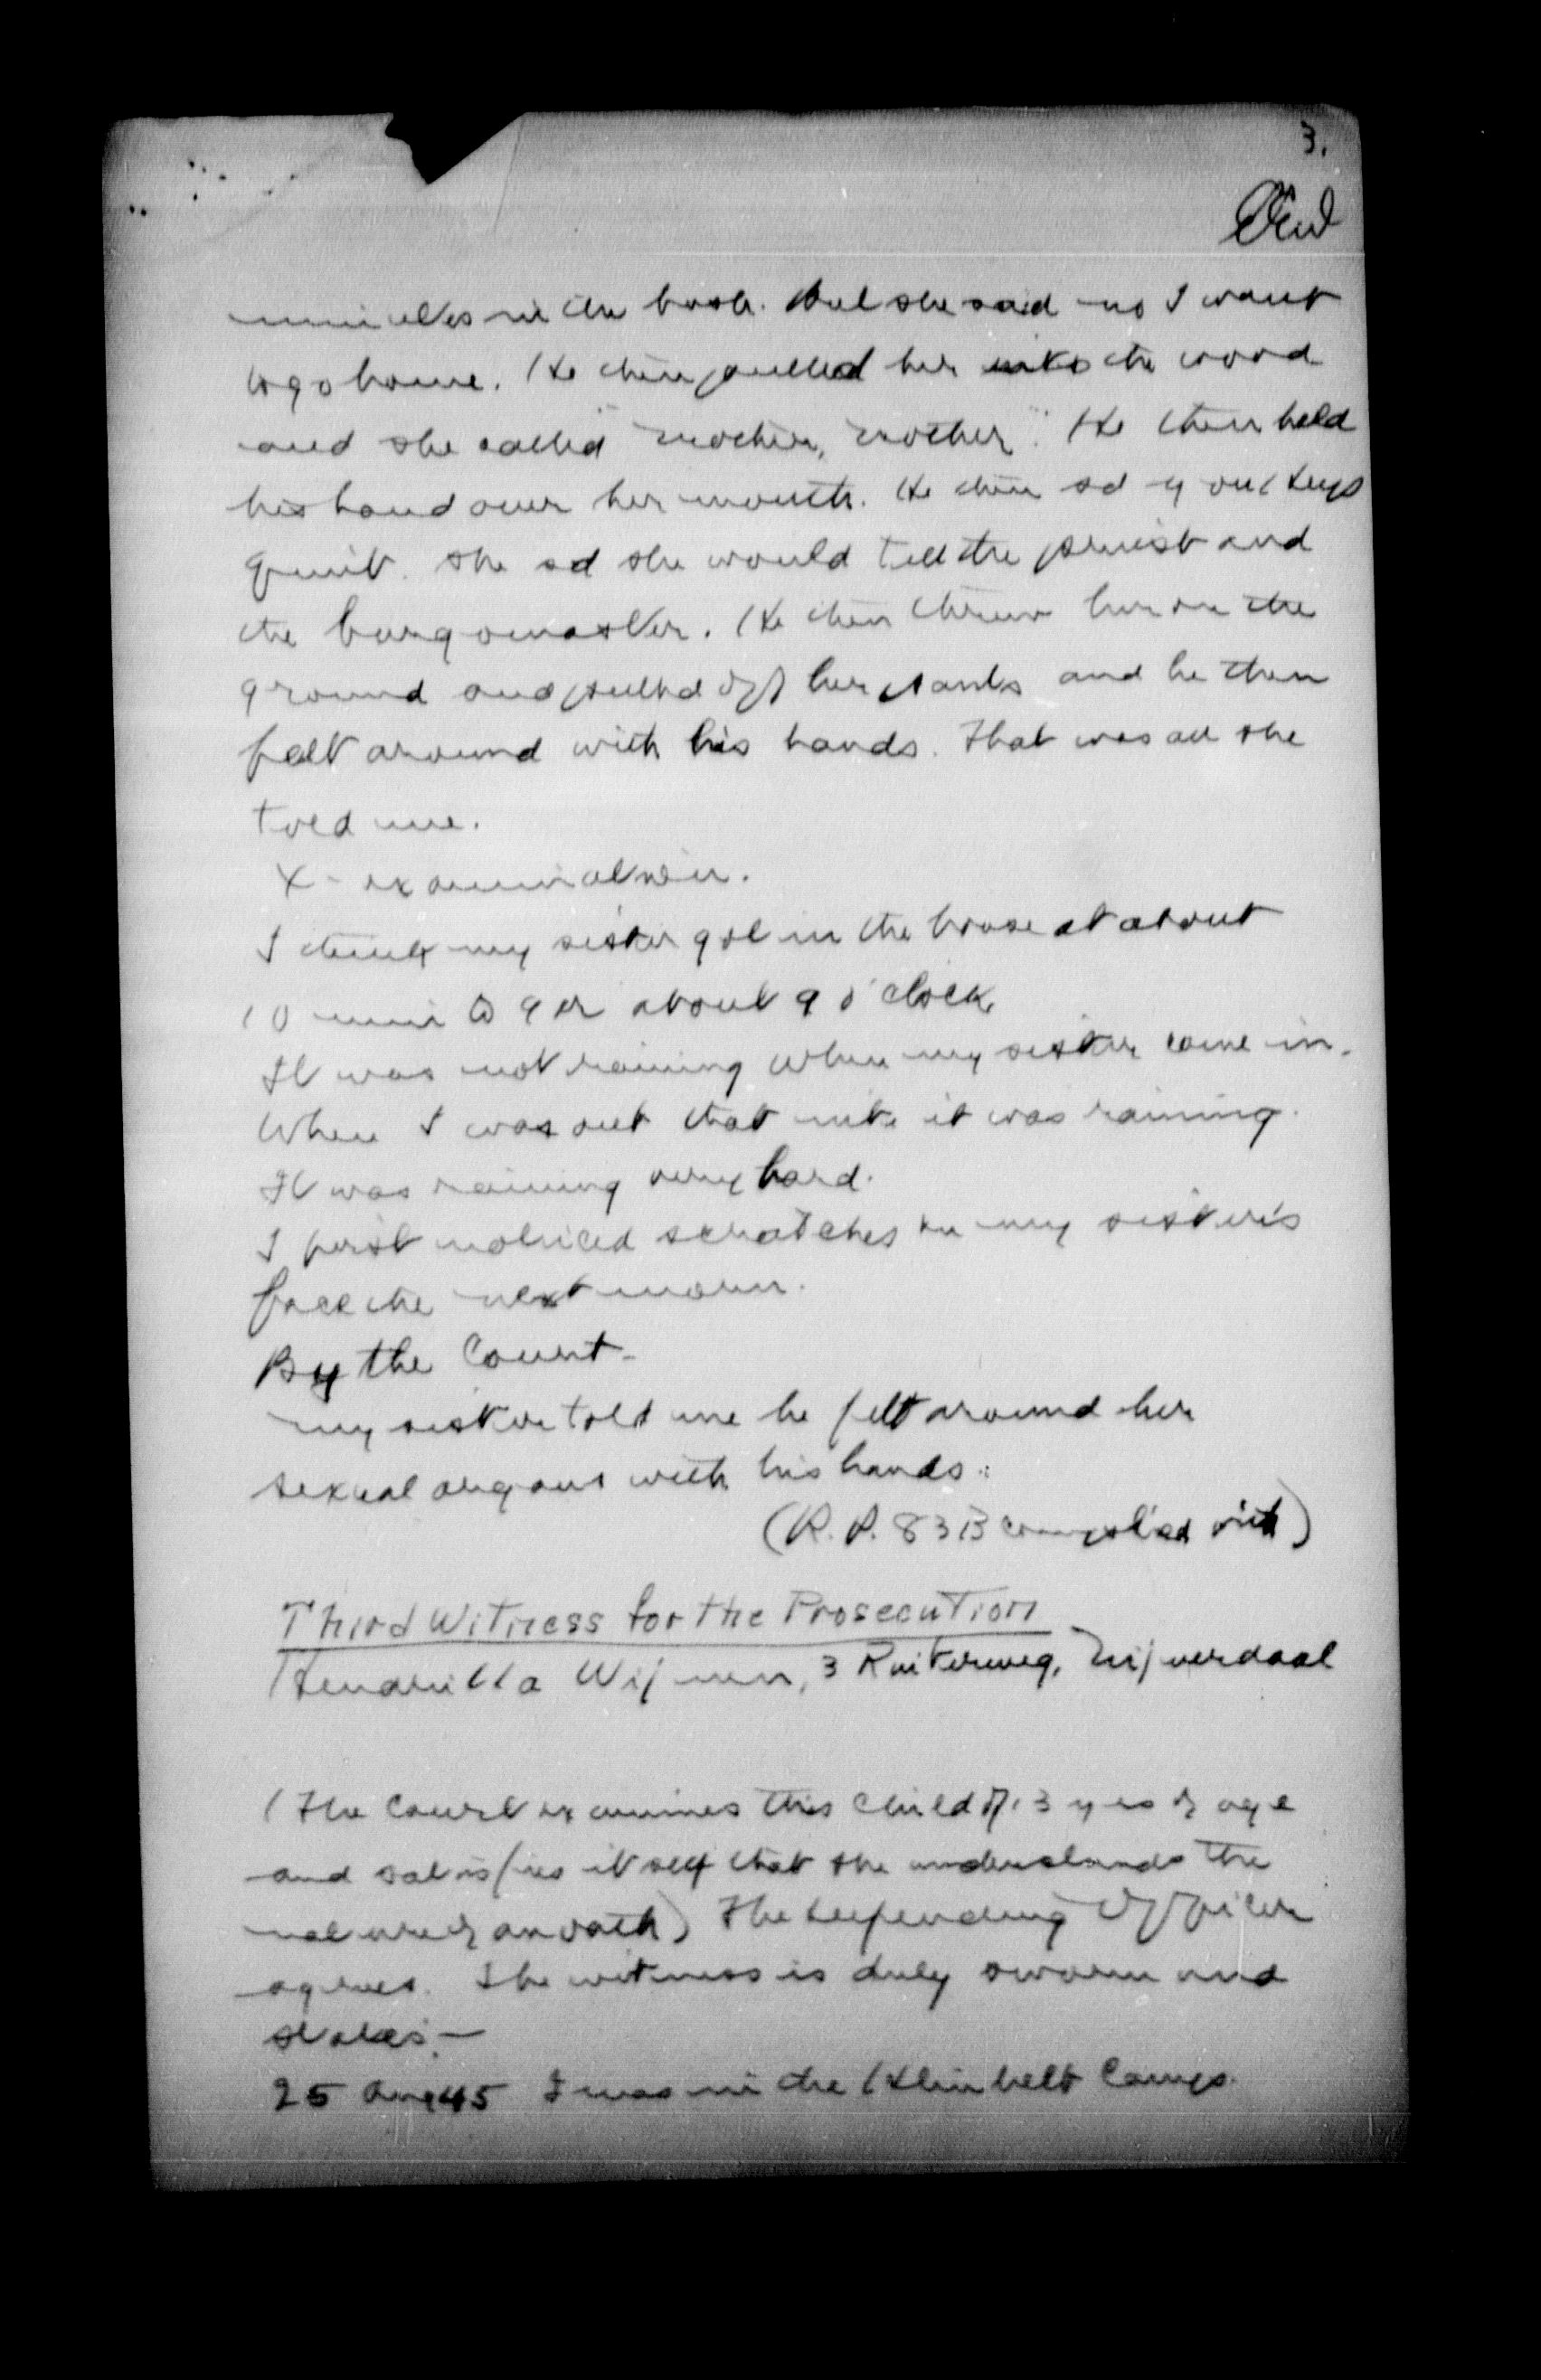 3.
minutes in the bush. But she said no I want
to go home. He then pulled her into the wood
and she called "mother, mother". He then held
his hand over her mouth. He then sd you keep
quiet. She sd she would tell the priest and
the burgomaster. He then threw her on the
ground and pulled off her pants and he then
felt around with his hands. That was all she
told me.
X-examination.
I think my sister got in the house at about
10 min to 9 or about 9 o'clock.
It was not raining when my sister came in.
When I was out that nite it was raining.
It was raining very hard.
I first noticed scratches on my sister's
face the next morn.
By the Court-
my sister told me he felt around her
sexual organs with his hands.
(R.P. 83B complied with)
Third Witness for the Prosecution
Wijnen, 3 Ruiterweg, Nijverdaal
(The Court examines this child of 13 yrs of age
and satisfies itself that she understands the
nature of an oath) The Defending Officer
agrees. The witness is duly sworn and
states:-
25 Aug 45 I was in the Camp.